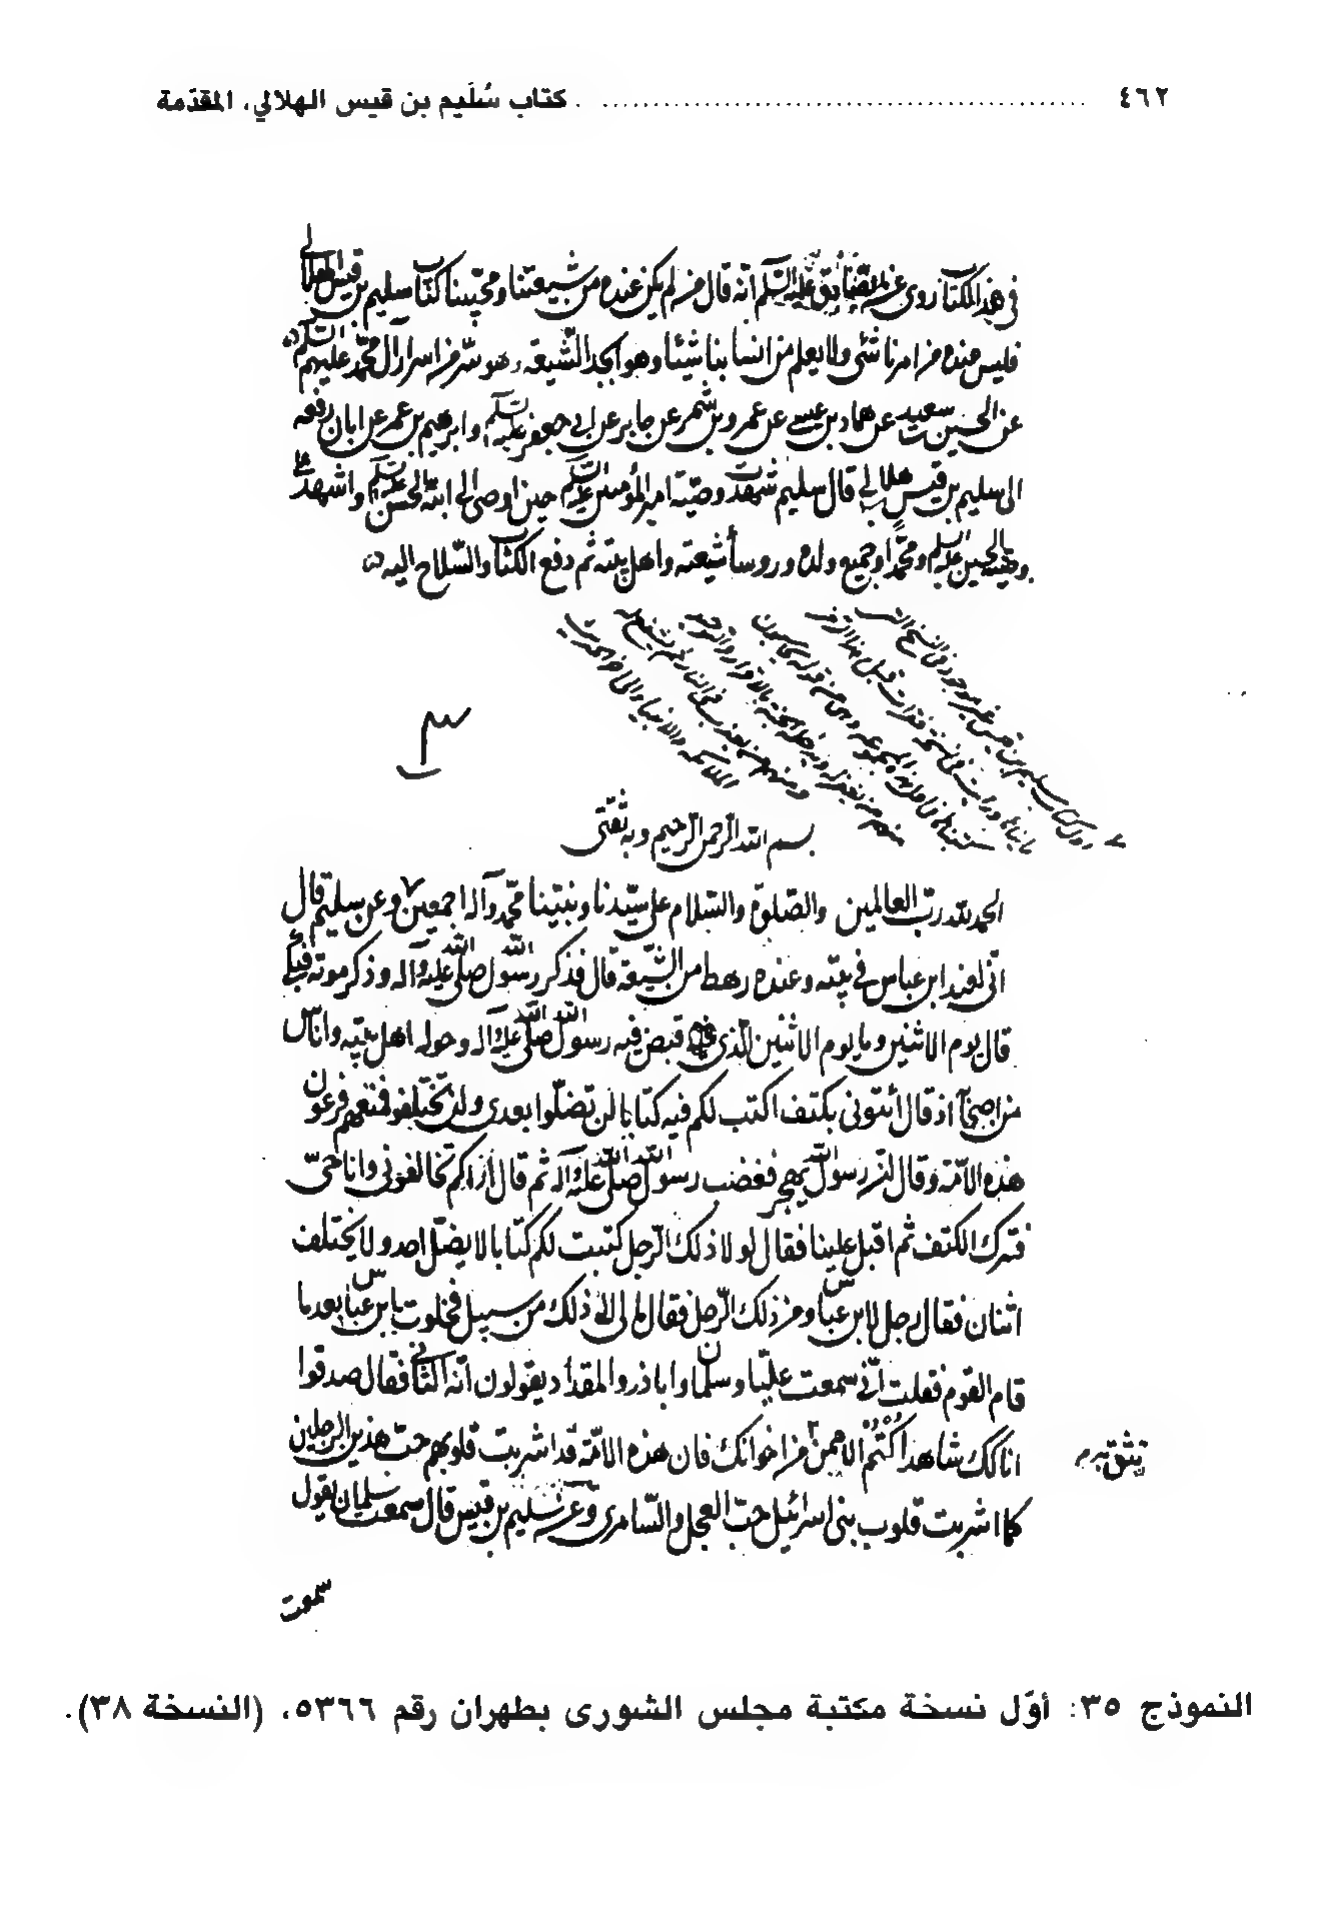 ٤٦٢ ........ كتاب سُلَيم بن قيس الهلالي، المقدّمة
في هذا الكتاب روى عن الصادق عليه السلم انه قال من لم يكن عنده من شيعتنا ومحبينا كتاب سليم بن قيس الهلالي
فليس عنده من امرنا شئ ولا يعلم من اسبابنا شيئا وهو ابجد الشيعه وهو سر من اسرار آل محمد عليهم السلم
عن الحسين بن سعيد عن حماد بن عيسى عن عمرو بن شمر عن جابر عن ابي جعفر عليه السلم وابرهيم بن عمر عن ابان رفعه
الى سليم بن قيس هلالي قال سليم شهدت وصية امير المؤمنين عليه السلم حين اوصى الى ابنه الحسن عليه السلم واشهد على
وصيته الحسين عليه السلم ومحمدا وجميع ولده وروسأ شيعته واهل بيته ثم دفع الكتاب والسلاح اليه
اول كتاب سليم بن قيس غير موجود في النسخ
الملائكة والانبياء والى آخر الحديث
بسم الله الرحمن الرحيم وبه ثقتى
الحمد لله رب العالمين والصلوة والسلام على سيدنا ونبينا محمد وآله اجمعين وعن سليم قال
انى لعند ابن عباس في بيته وعنده رهط من الشيعة قال فذكر رسول الله صلى الله عليه وآله وذكر موته فبكى
قال يوم الاثنين وما يوم الاثنين الذى قبض فيه رسول الله صلى الله عليه وآله وحوله اهل بيته واناس
من اصحابه اذ قال أئتونى بكتف اكتب لكم فيه كتابا لن تضلوا بعدى ولن تختلفوا فمنعهم فرعون
هذه الامة وقال ان رسول الله يهجر فغضب رسول الله صلى الله عليه وآله ثم قال أراكم تخالفونى وانا حى
فترك الكتف ثم اقبل علينا فقال لولا ذلك الرجل كتبت لكم كتابا لا يضل احد ولا يختلف
اثنان فقال رجل لابن عباس ومن ذلك الرجل فقال مالى الى ذلك من سبيل فخلوت بابن عباس بعد ما
قام القوم فقلت انى سمعت عليا وسلمان وابا ذر والمقداد يقولون انه الثانى فقال صدقوا
انا لك شاهد اكتم الا ممن من اخوانك فان هذه الامة قد اشربت قلوبهم حب هذين الرجلين
كما اشربت قلوب بنى اسرائيل حب العجل والسامرى وعن سليم بن قيس قال سمعت سلمان يقول
تثق بهم
سمعت
النموذج ٣٥: أوّل نسخة مكتبة مجلس الشورى بطهران رقم ٥٣٦٦، (النسخة ٣٨).